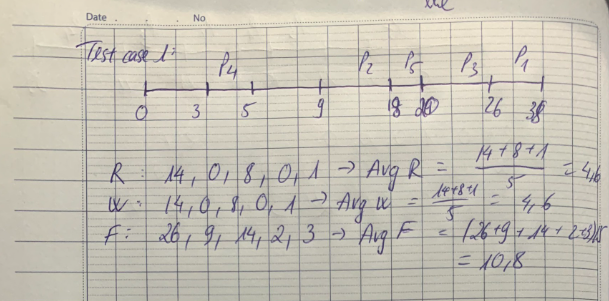 Date . . . No
Test case 1:
P4 P2 P5 P3 P1
0 3 5 9 18 20 26 38
R : 14, 0, 8, 0, 1 → Avg R = 14+8+1 / 5 = 4,6
W : 14, 0, 8, 0, 1 → Avg W = 14+8+1 / 5 = 4,6
F : 26, 9, 14, 2, 3 → Avg F = (26+9+14+2+3)/5
= 10,8